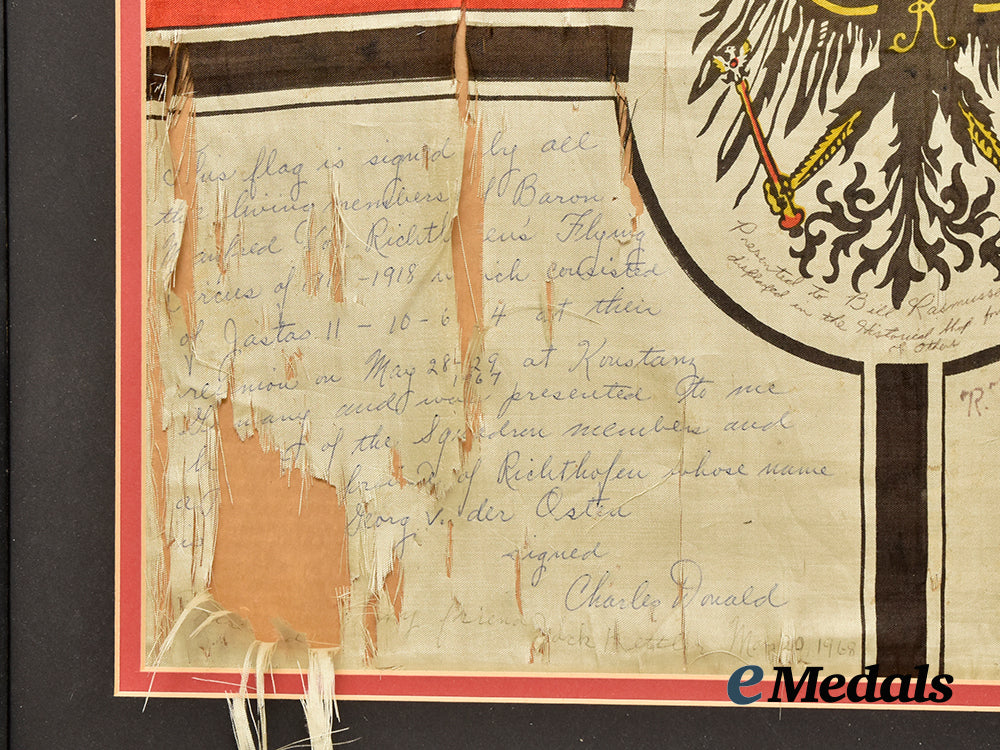 This flag is signed by all
the living members of Baron
Manfred Von Richthofen's Flying
Circus of 1917-1918 which consisted
of Jastas 11 - 10 - 6 4 at their
reunion on May 28 & 29 at Konstanz
1967
Germany and was presented to me
of the Squadron members and
friend of Richthofen whose name
Georg v. der Osten
signed
Charles Donald
my friend Jack Kettler 1968
Presented to Bill Rasmussen
displayed in the Historical for
of others
"R."
K
eMedals